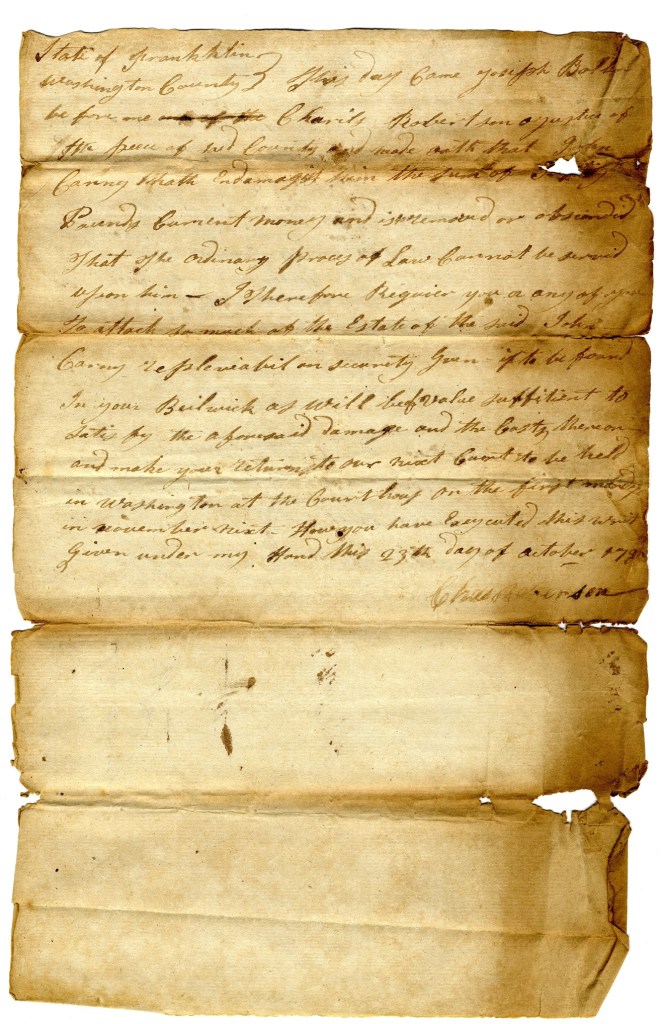 State of Frankklin
Washington County } This day Came Joseph
be fore me one of the Charils Robertson a justice of
the peece of sed County and made oath that John
Carny Heath Endamaged him the sum of
Pounds Current money and is removed or absconded
That the ordinary Proces of Law Cannot be servid
upon him – I Therefore Requier you or any of you
To attach so much of the Estate of the sid John
Carny repleviabil on security Given – if to be found
In your Beilwick as will be of value suffitient to
Satis by the aforesaid damage and the Costs thereon
and make your return to our next Court to be held
in Washington at the Court hous on the first monday
in november next – How you have Executed this writ
Given under my Hand this 23th day of october